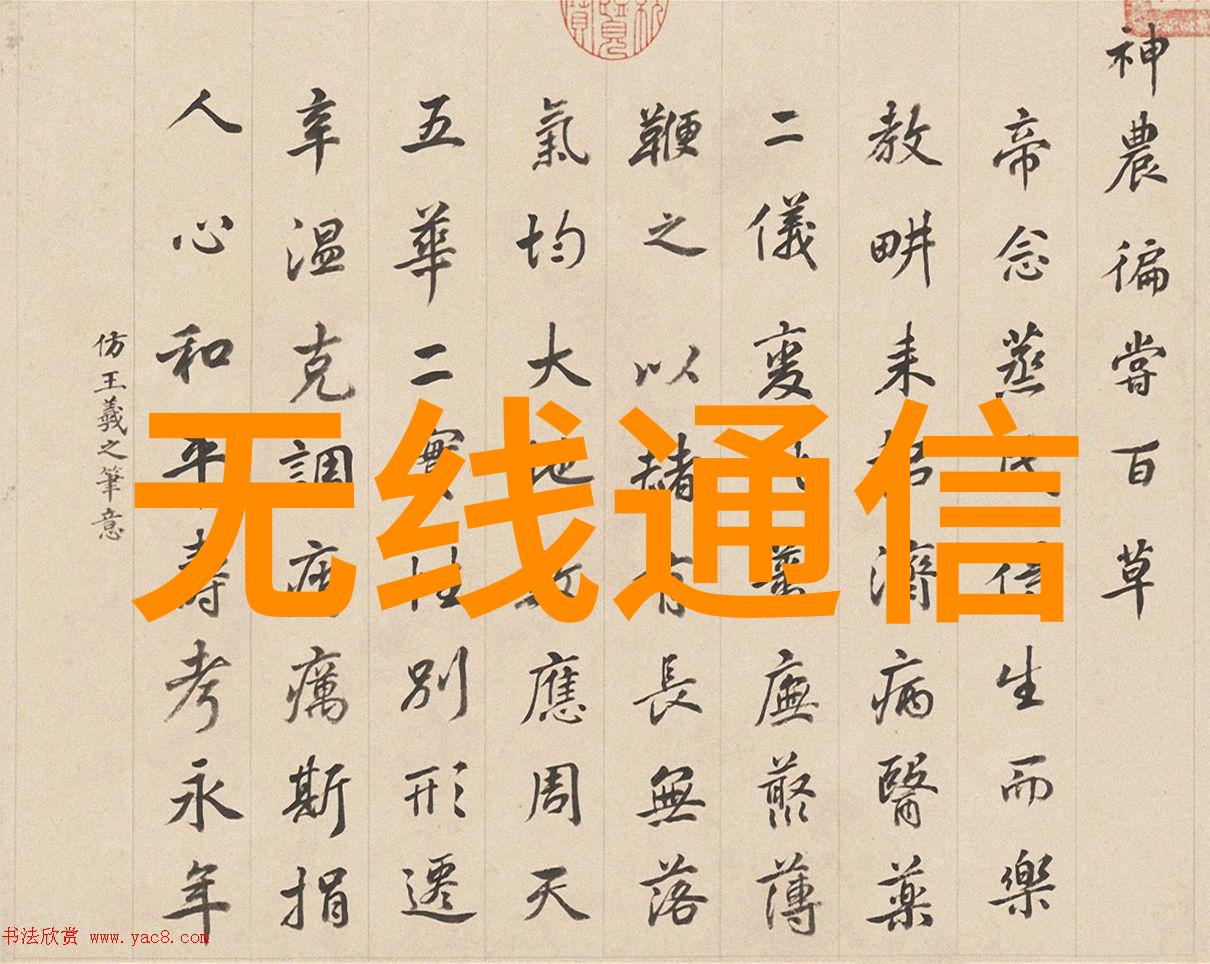 神農徧嘗百草
帝念蒸民生而樂
教畊耒濟病醫藥
二儀變廡叢薄
鞭之以赭有長無落
氣均大地數應周天
五華二實性別形遷
辛温克調癘斯捐
人心和平壽考永年
仿王羲之筆意
无线通信
书法欣赏 www.yac8.com